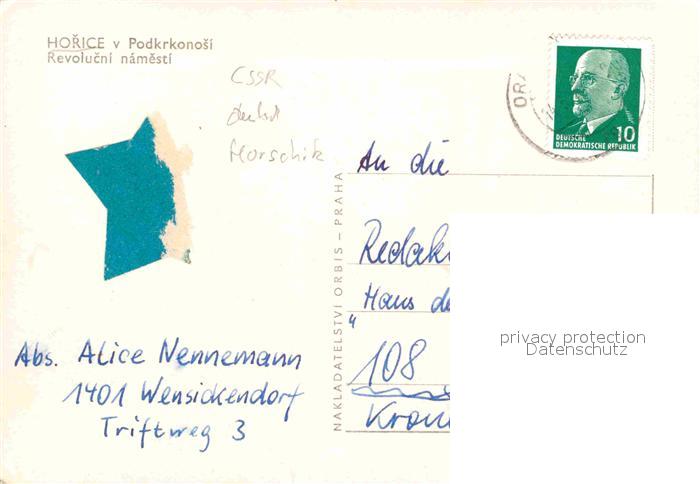 HOŘICE v Podkrkonoší
Revoluční náměstí
ČSSR
Horschik
DEUTSCHE
DEMOKRATISCHE REPUBLIK
10
ORA
NAKLADATELSTVÍ ORBIS – PRAHA
An die
Redak
Haus de
"
108
Kron
privacy protection
Datenschutz
Abs. Alice Nennemann
1401 Wensickendorf
Triftweg 3